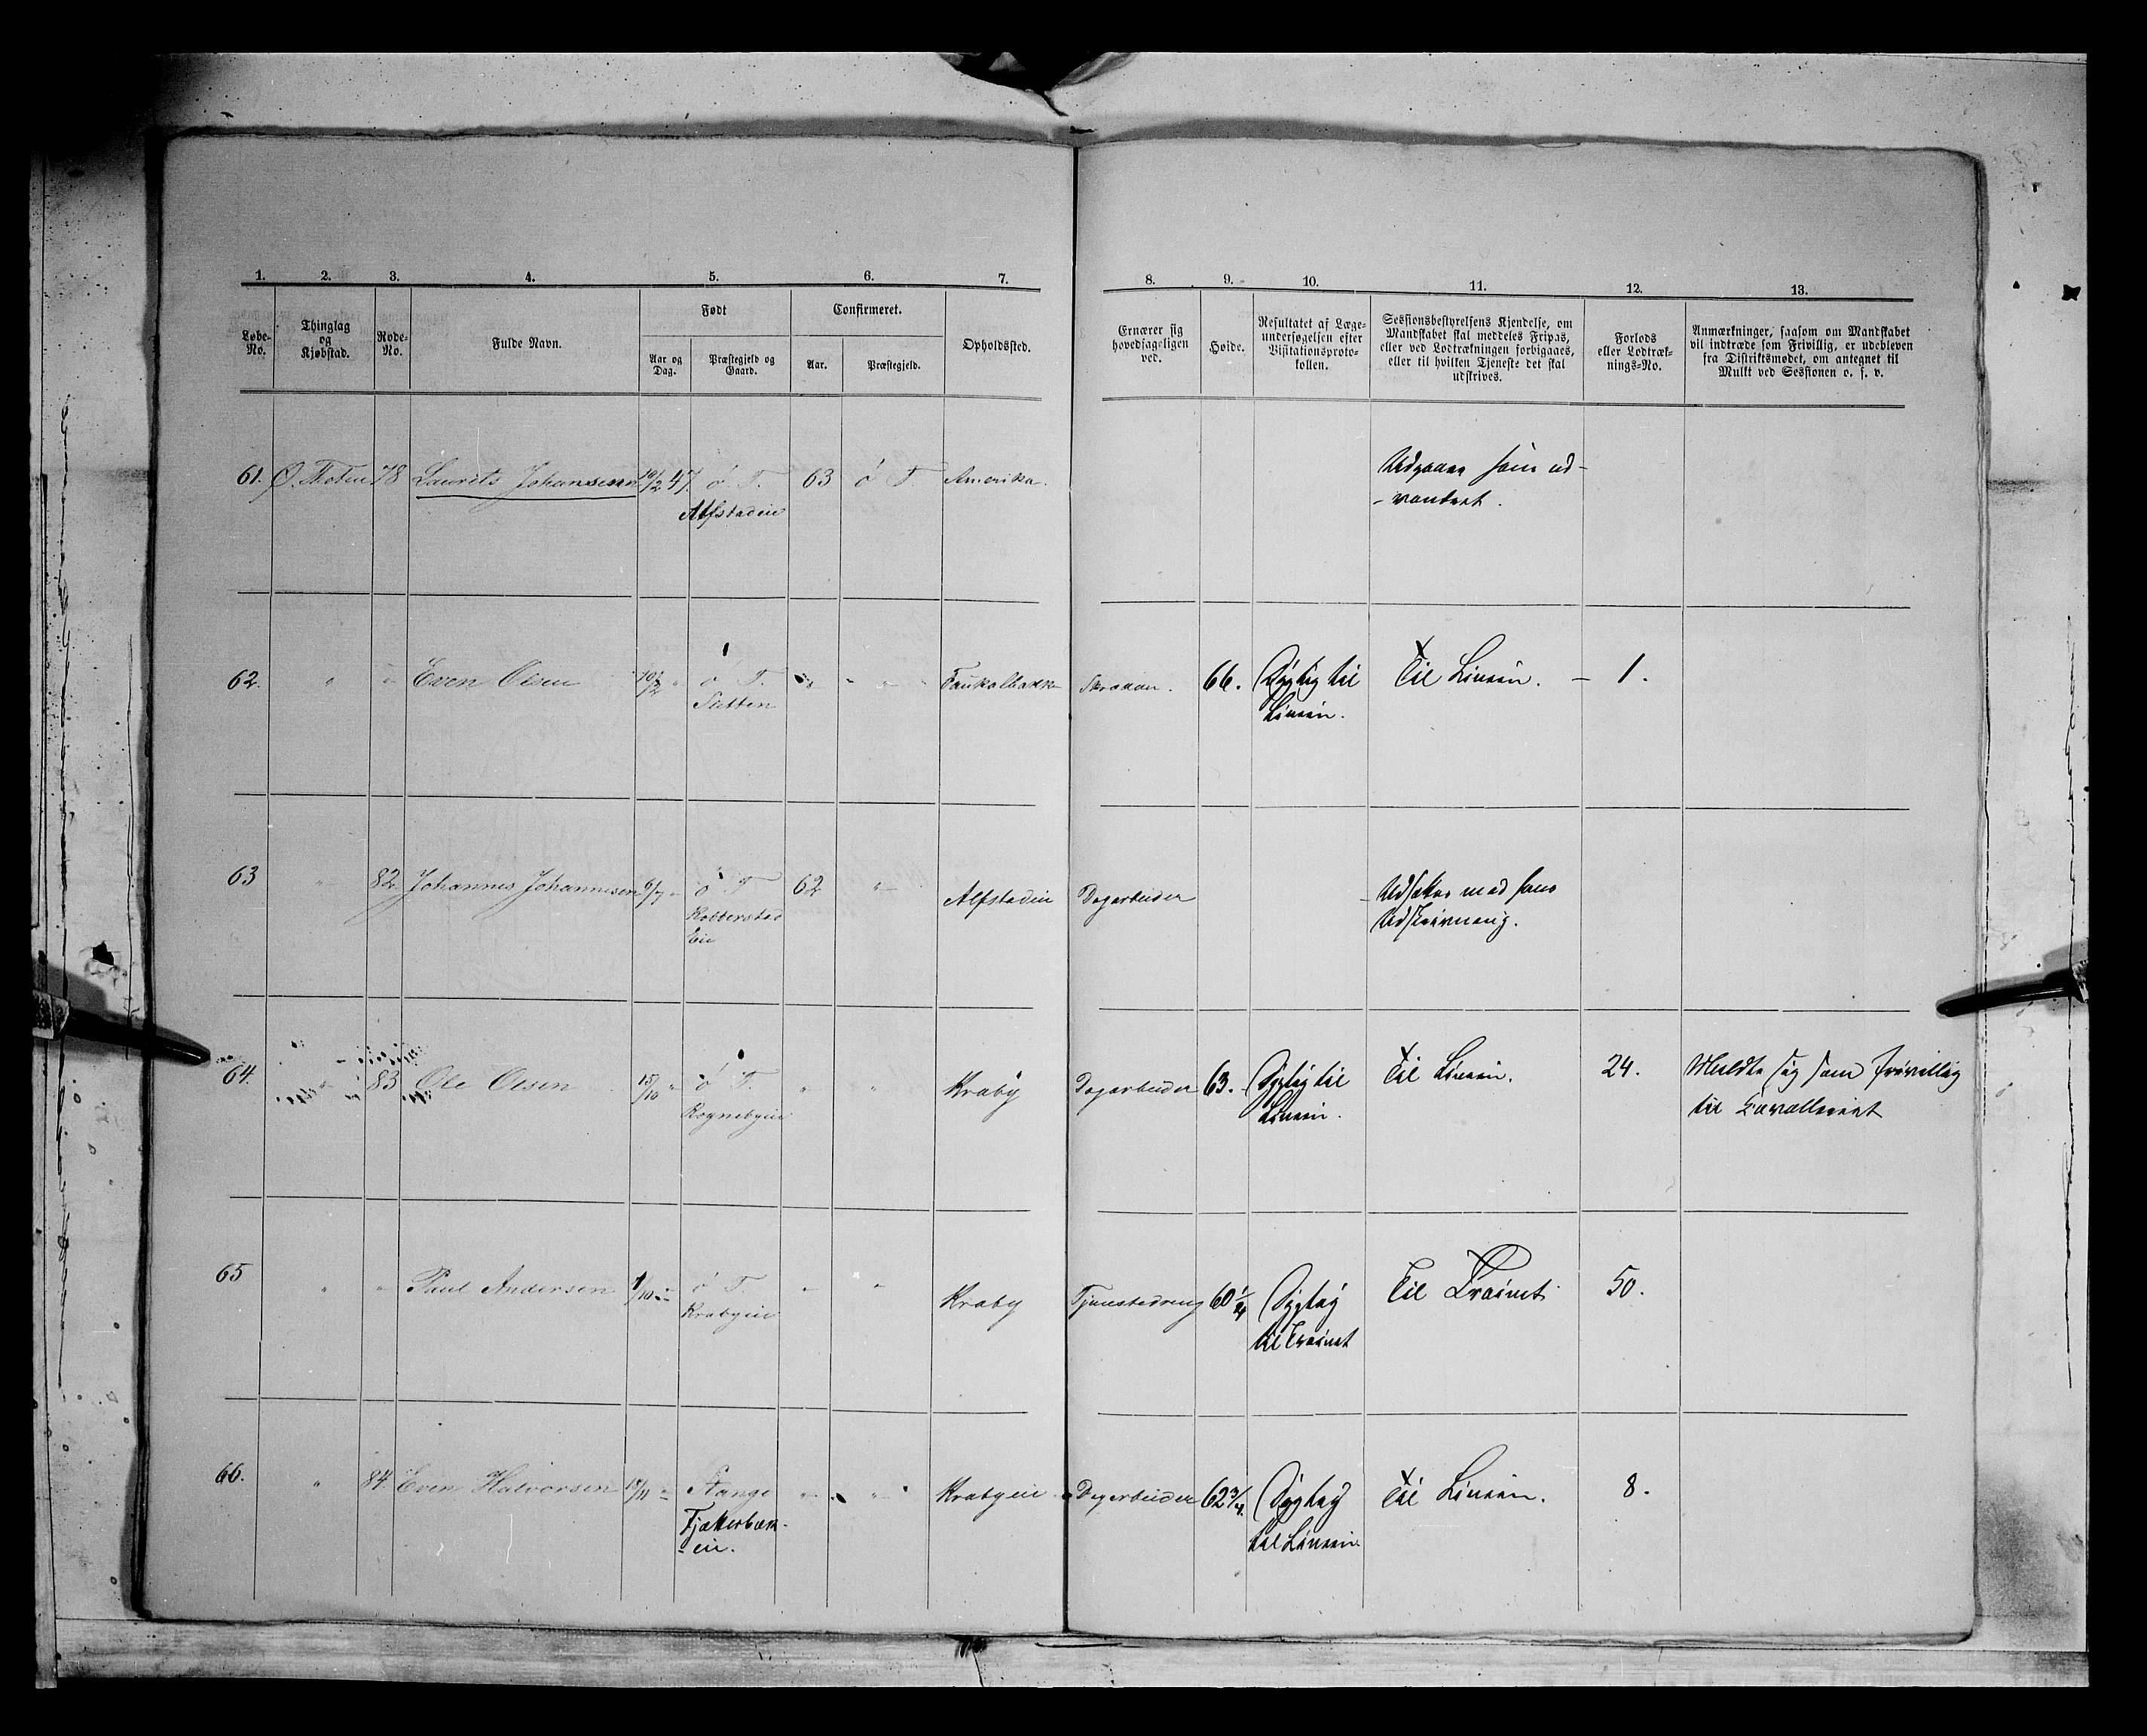 1. 2. 3. 4. 5. 6. 7. 8. 9. 10. 11. 12. 13.
Løbe-No.
Thinglag og Kjøbstad.
Rode-No.
Fulde Navn.
Født
Aar og Dag.
Præstegjeld og Gaard.
Confirmeret.
Aar.
Præstegjeld.
Opholdssted.
Ernærer sig hovedsageligen ved.
Høide.
Resultatet af Læge-undersøgelsen efter Visitationsproto-kollen.
Sessionsbestyrelsens Kjendelse, om Mandskabet skal meddeles Fripas, eller ved Lodtrækningen forbigaaes, eller til hvilken Tjeneste det skal udskrives.
Forlods eller Lodtræk-nings-No.
Anmærkninger, saasom om Mandskabet vil indtræde som Frivillig, er udebleven fra Distriktsmødet, om antegnet til Mulkt ved Sessionen o. s. v.
61. Ø. Thoten 78 Laurits Johansen 10/2 47. ö T. 63 ö T. Amerika. Udgaaer som ud-
Alfstadeie -vandret.
62. " " Even Olsen " ö T. " " Skrædder. 66. Dygtig til Til Linien. - 1.
Linien.
63 " 82 Johannes Johannesen 6/7 " ö T. 62 " Alfstadeie Dagarbeider Udsættes med hans
Kolterstad Udskrivning.
Eie
64. " 83 Ole Olsen 15/10 " ö T. " " Kraby Dagarbeider 63. Dygtig til Til Linien. 24. Meldte sig som frivillig
Rognebyeie Linien. til Cavalleriet
65 " " Paul Andersen /10 " ö T. " " Kraby Tjenestedreng 60 1/4 Dygtig Til Trainet 50.
Krabyeie til Trainet
66. " 84. Even Halvorsen /11 " Stange " " Krabyeie Dagarbeider 62 3/4. Dygtig Til Linien. 8.
-eie. til Linien